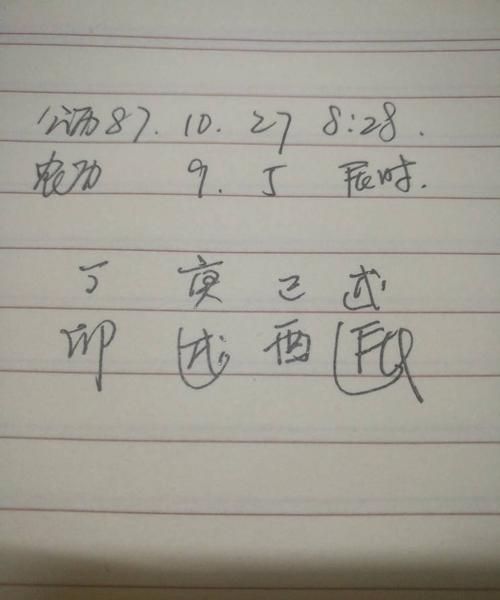 公历87. 10. 27 8:28.
农历 9. 5 辰时.
丁 庚 己 戊
卯 戌 酉 辰